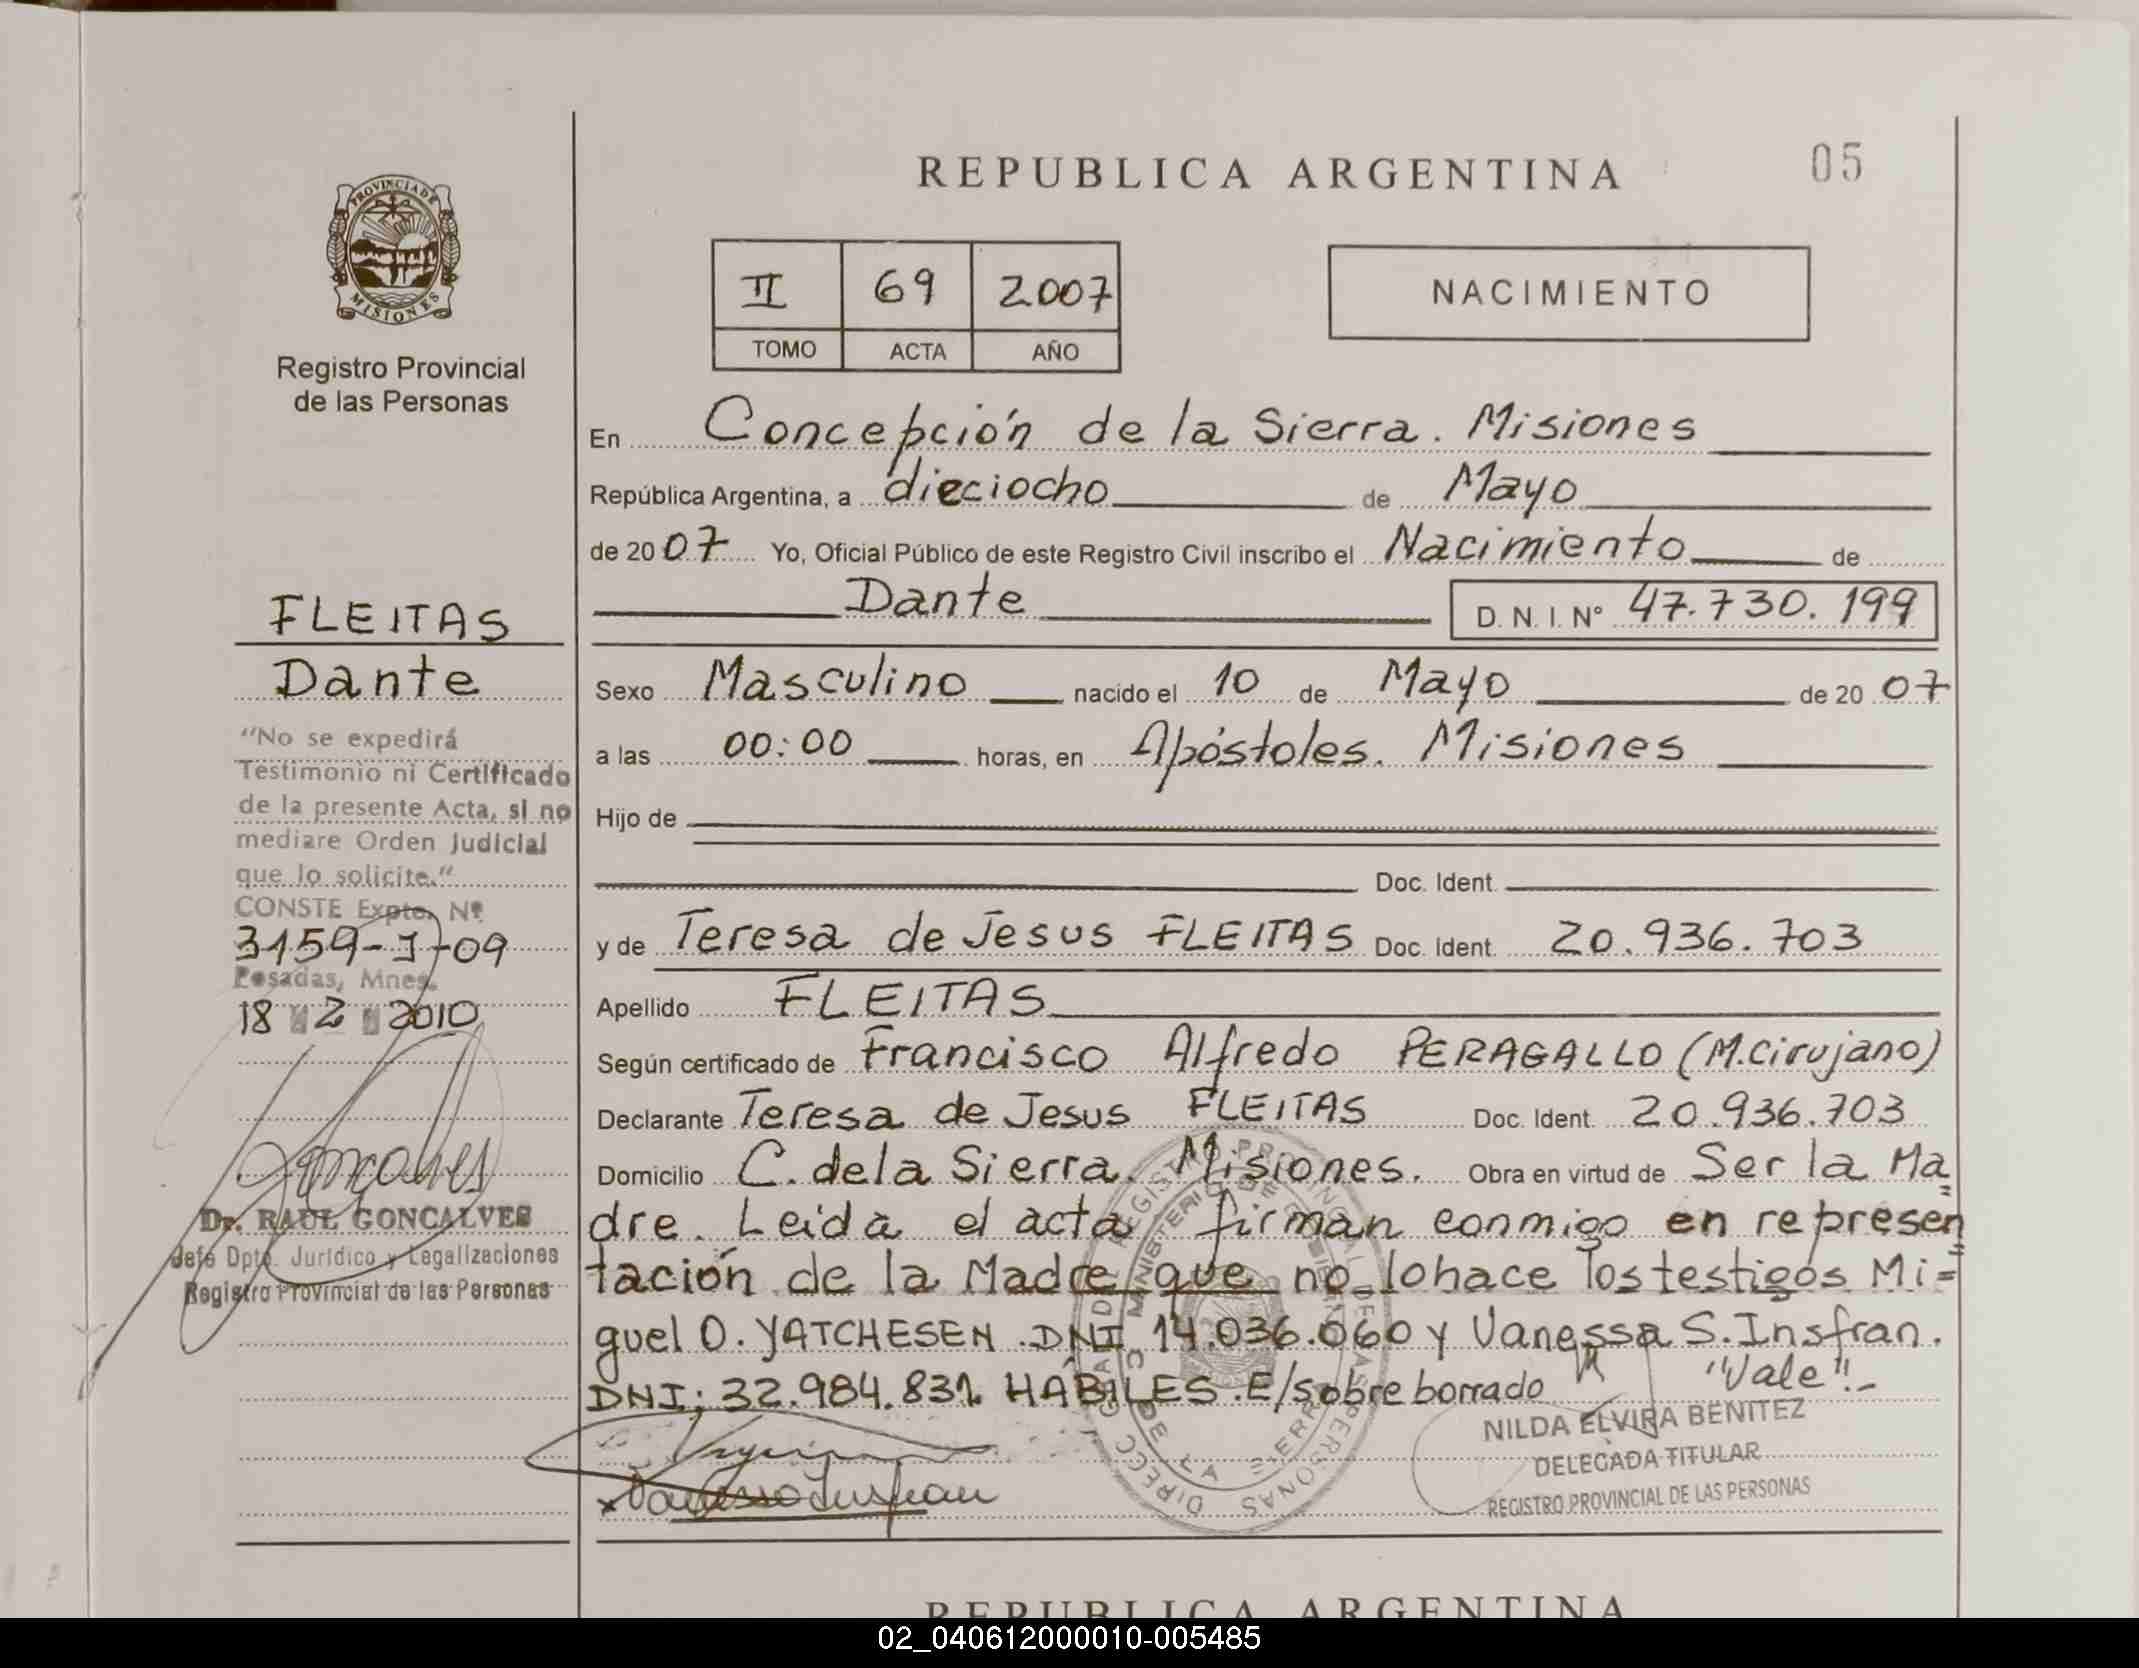 REPUBLICA ARGENTINA
05
PROVINCIA DE MISIONES
Registro Provincial
de las Personas
II 69 2007
TOMO ACTA AÑO
NACIMIENTO
En Concepción de la Sierra. Misiones
República Argentina, a dieciocho de Mayo
de 2007 Yo, Oficial Público de este Registro Civil inscribo el Nacimiento de
Dante D. N. I. N° 47.730.199
Sexo Masculino nacido el 10 de Mayo de 2007
a las 00:00 horas, en Apóstoles. Misiones
Hijo de
Doc. Ident.
y de Teresa de Jesus FLEITAS Doc. Ident. 20.936.703
Apellido FLEITAS
Según certificado de Francisco Alfredo PERAGALLO (M.Cirujano)
Declarante Teresa de Jesus FLEITAS Doc. Ident. 20.936.703
Domicilio C. de la Sierra. Misiones. Obra en virtud de Ser la Ma
dre. Leida el acta firman conmigo en represen
tación de la Madre que no lo hace los testigos Mi=
guel O. YATCHESEN. DNI 14.036.060 y Vanessa S. Insfran.
DNI: 32.984.831 HÁBILES. E/sobre borrado "Vale".-
Vanessa Insfran
NILDA ELVIRA BENITEZ
DELEGADA TITULAR
REGISTRO PROVINCIAL DE LAS PERSONAS
FLEITAS
Dante
"No se expedirá
Testimonio ni Certificado
de la presente Acta, si no
mediare Orden Judicial
que lo solicite."
CONSTE Expte. Nº
3159-J-09
Posadas, Mnes.
18 2 2010
Goncalves
Dr. RAUL GONCALVES
Jefe Dpto. Jurídico y Legalizaciones
Registro Provincial de las Personas
REPUBLICA ARGENTINA
02_040612000010-005485